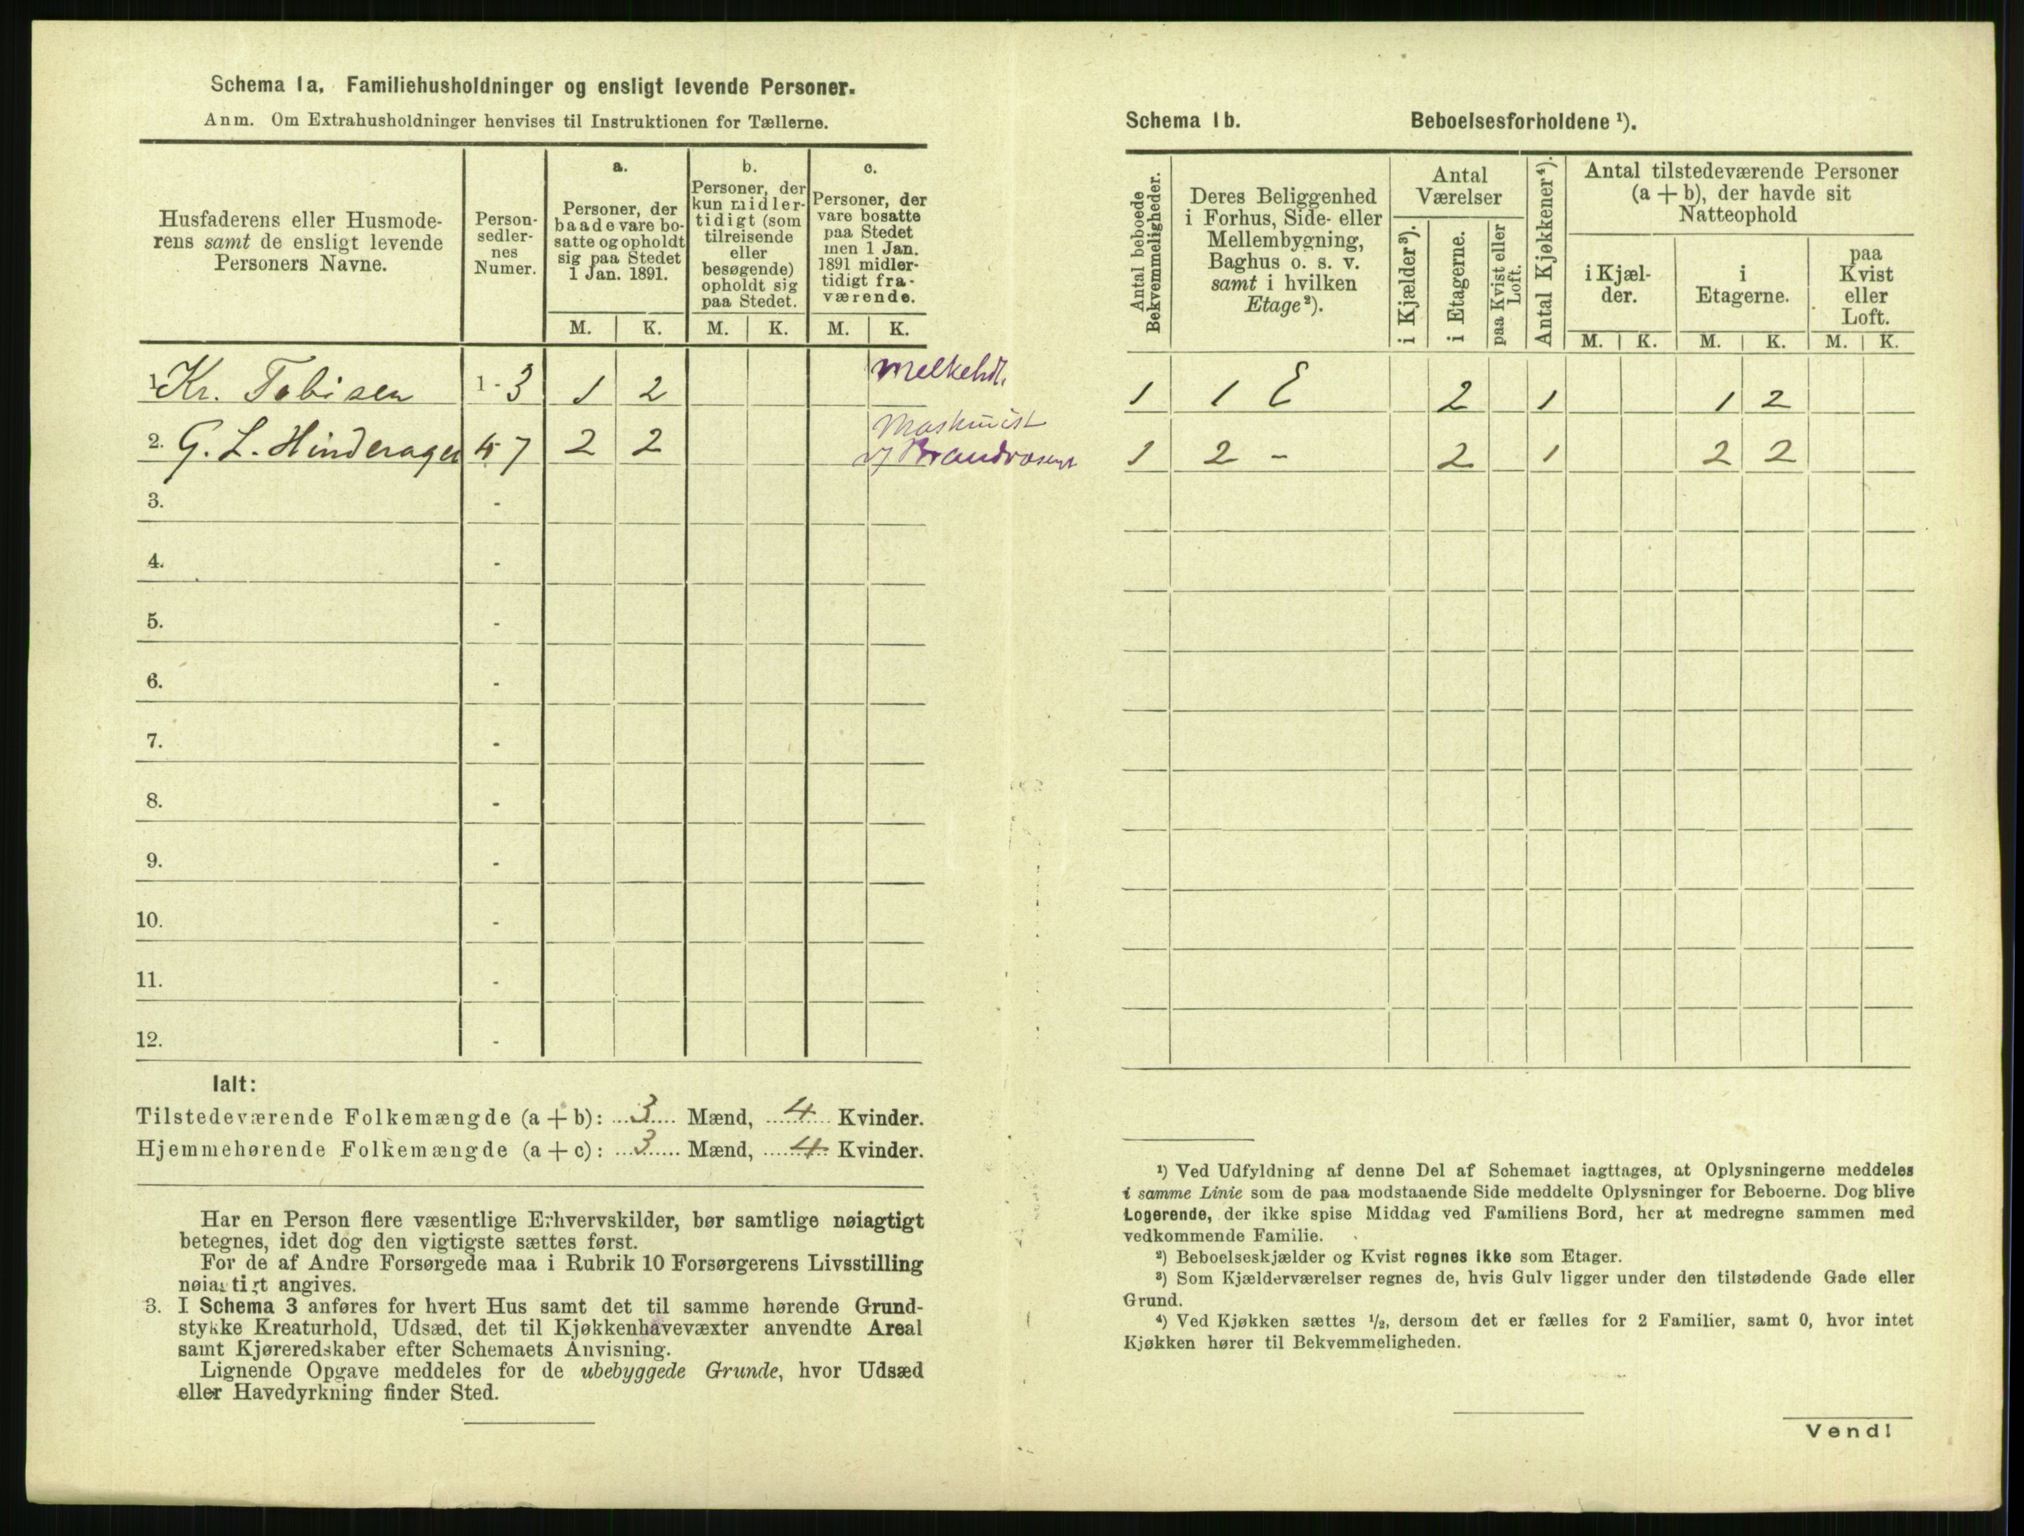 Schema 1a. Familiehusholdninger og ensligt levende Personer.
Anm. Om Extrahusholdninger henvises til Instruktionen for Tællerne.
Husfaderens eller Husmode-
rens samt de ensligt levende
Personers Navne.
Person-
sedler-
nes
Numer.
a.
Personer, der
baade vare bo-
satte og opholdt
sig paa Stedet
1 Jan. 1891.
b.
Personer, der
kun midler-
tidigt (som
tilreisende
eller
besøgende)
opholdt sig
paa Stedet.
c.
Personer, der
vare bosatte
paa Stedet
men 1 Jan.
1891 midler-
tidigt fra-
værende.
M. K. M. K. M. K.
1. Kr. Tobisen 1 - 3 1 2 Melkehdl.
2. G. L. Hinderager 4 - 7 2 2 Maskinist
v/ Brandvæsent
3. -
4. -
5. -
6. -
7. -
8. -
9. -
10. -
11. -
12. -
Ialt:
Tilstedeværende Folkemængde (a + b): 3 Mænd, 4 Kvinder.
Hjemmehørende Folkemængde (a + c): 3 Mænd, 4 Kvinder.
Har en Person flere væsentlige Erhvervskilder, bør samtlige nøiagtigt
betegnes, idet dog den vigtigste sættes først.
For de af Andre Forsørgede maa i Rubrik 10 Forsørgerens Livsstilling
nøiagtigt angives.
3. I Schema 3 anføres for hvert Hus samt det til samme hørende Grund-
stykke Kreaturhold, Udsæd, det til Kjøkkenhavevæxter anvendte Areal
samt Kjøreredskaber efter Schemaets Anvisning.
Lignende Opgave meddeles for de ubebyggede Grunde, hvor Udsæd
eller Havedyrkning finder Sted.
Schema 1b. Beboelsesforholdene ¹).
Antal beboede
Bekvemmeligheder.
Deres Beliggenhed
i Forhus, Side- eller
Mellembygning,
Baghus o. s. v.
samt i hvilken
Etage²).
Antal
Værelser
i Kjælder³).
i Etagerne.
paa Kvist eller
Loft.
Antal Kjøkkener⁴).
Antal tilstedeværende Personer
(a + b), der havde sit
Natteophold
i Kjæl-
der.
i
Etagerne.
paa
Kvist
eller
Loft.
M. K. M. K. M. K.
1 1 E 2 1 1 2
1 2 - 2 1 2 2
¹) Ved Udfyldning af denne Del af Schemaet iagttages, at Oplysningerne meddeles
i samme Linie som de paa modstaaende Side meddelte Oplysninger for Beboerne. Dog blive
Logerende, der ikke spise Middag ved Familiens Bord, her at medregne sammen med
vedkommende Familie.
²) Beboelseskjælder og Kvist regnes ikke som Etager.
³) Som Kjælderværelser regnes de, hvis Gulv ligger under den tilstødende Gade eller
Grund.
⁴) Ved Kjøkken sættes ½, dersom det er fælles for 2 Familier, samt 0, hvor intet
Kjøkken hører til Bekvemmeligheden.
Vend!